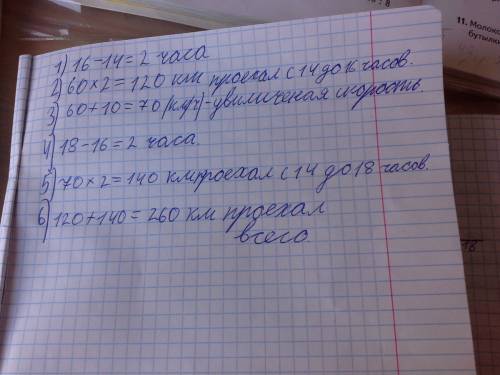 : 8
11. Молоко
бутылки
1) 16-14=2 часа
2) 60×2=120 км проехал с 14 до 16 часов.
3) 60+10=70 (км/ч)-увиличеная скорость.
4) 18-16=2 часа.
5) 70×2=140 км проехал с 14 до 18 часов.
6) 120+140=260 км проехал
всего.
18